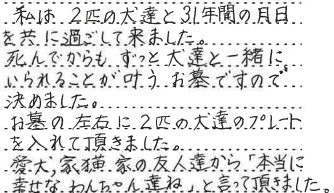 私は、2匹の犬達と31年間の月日
を共に過ごして来ました。
死んでからも、ずっと犬達と一緒に
いられることが叶うお墓ですので
決めました。
お墓の左右に2匹の犬達のプレート
を入れて頂きました。
愛犬家、猫家の友人達から「本当に
幸せなわんちゃん達ね」と言って頂きました。